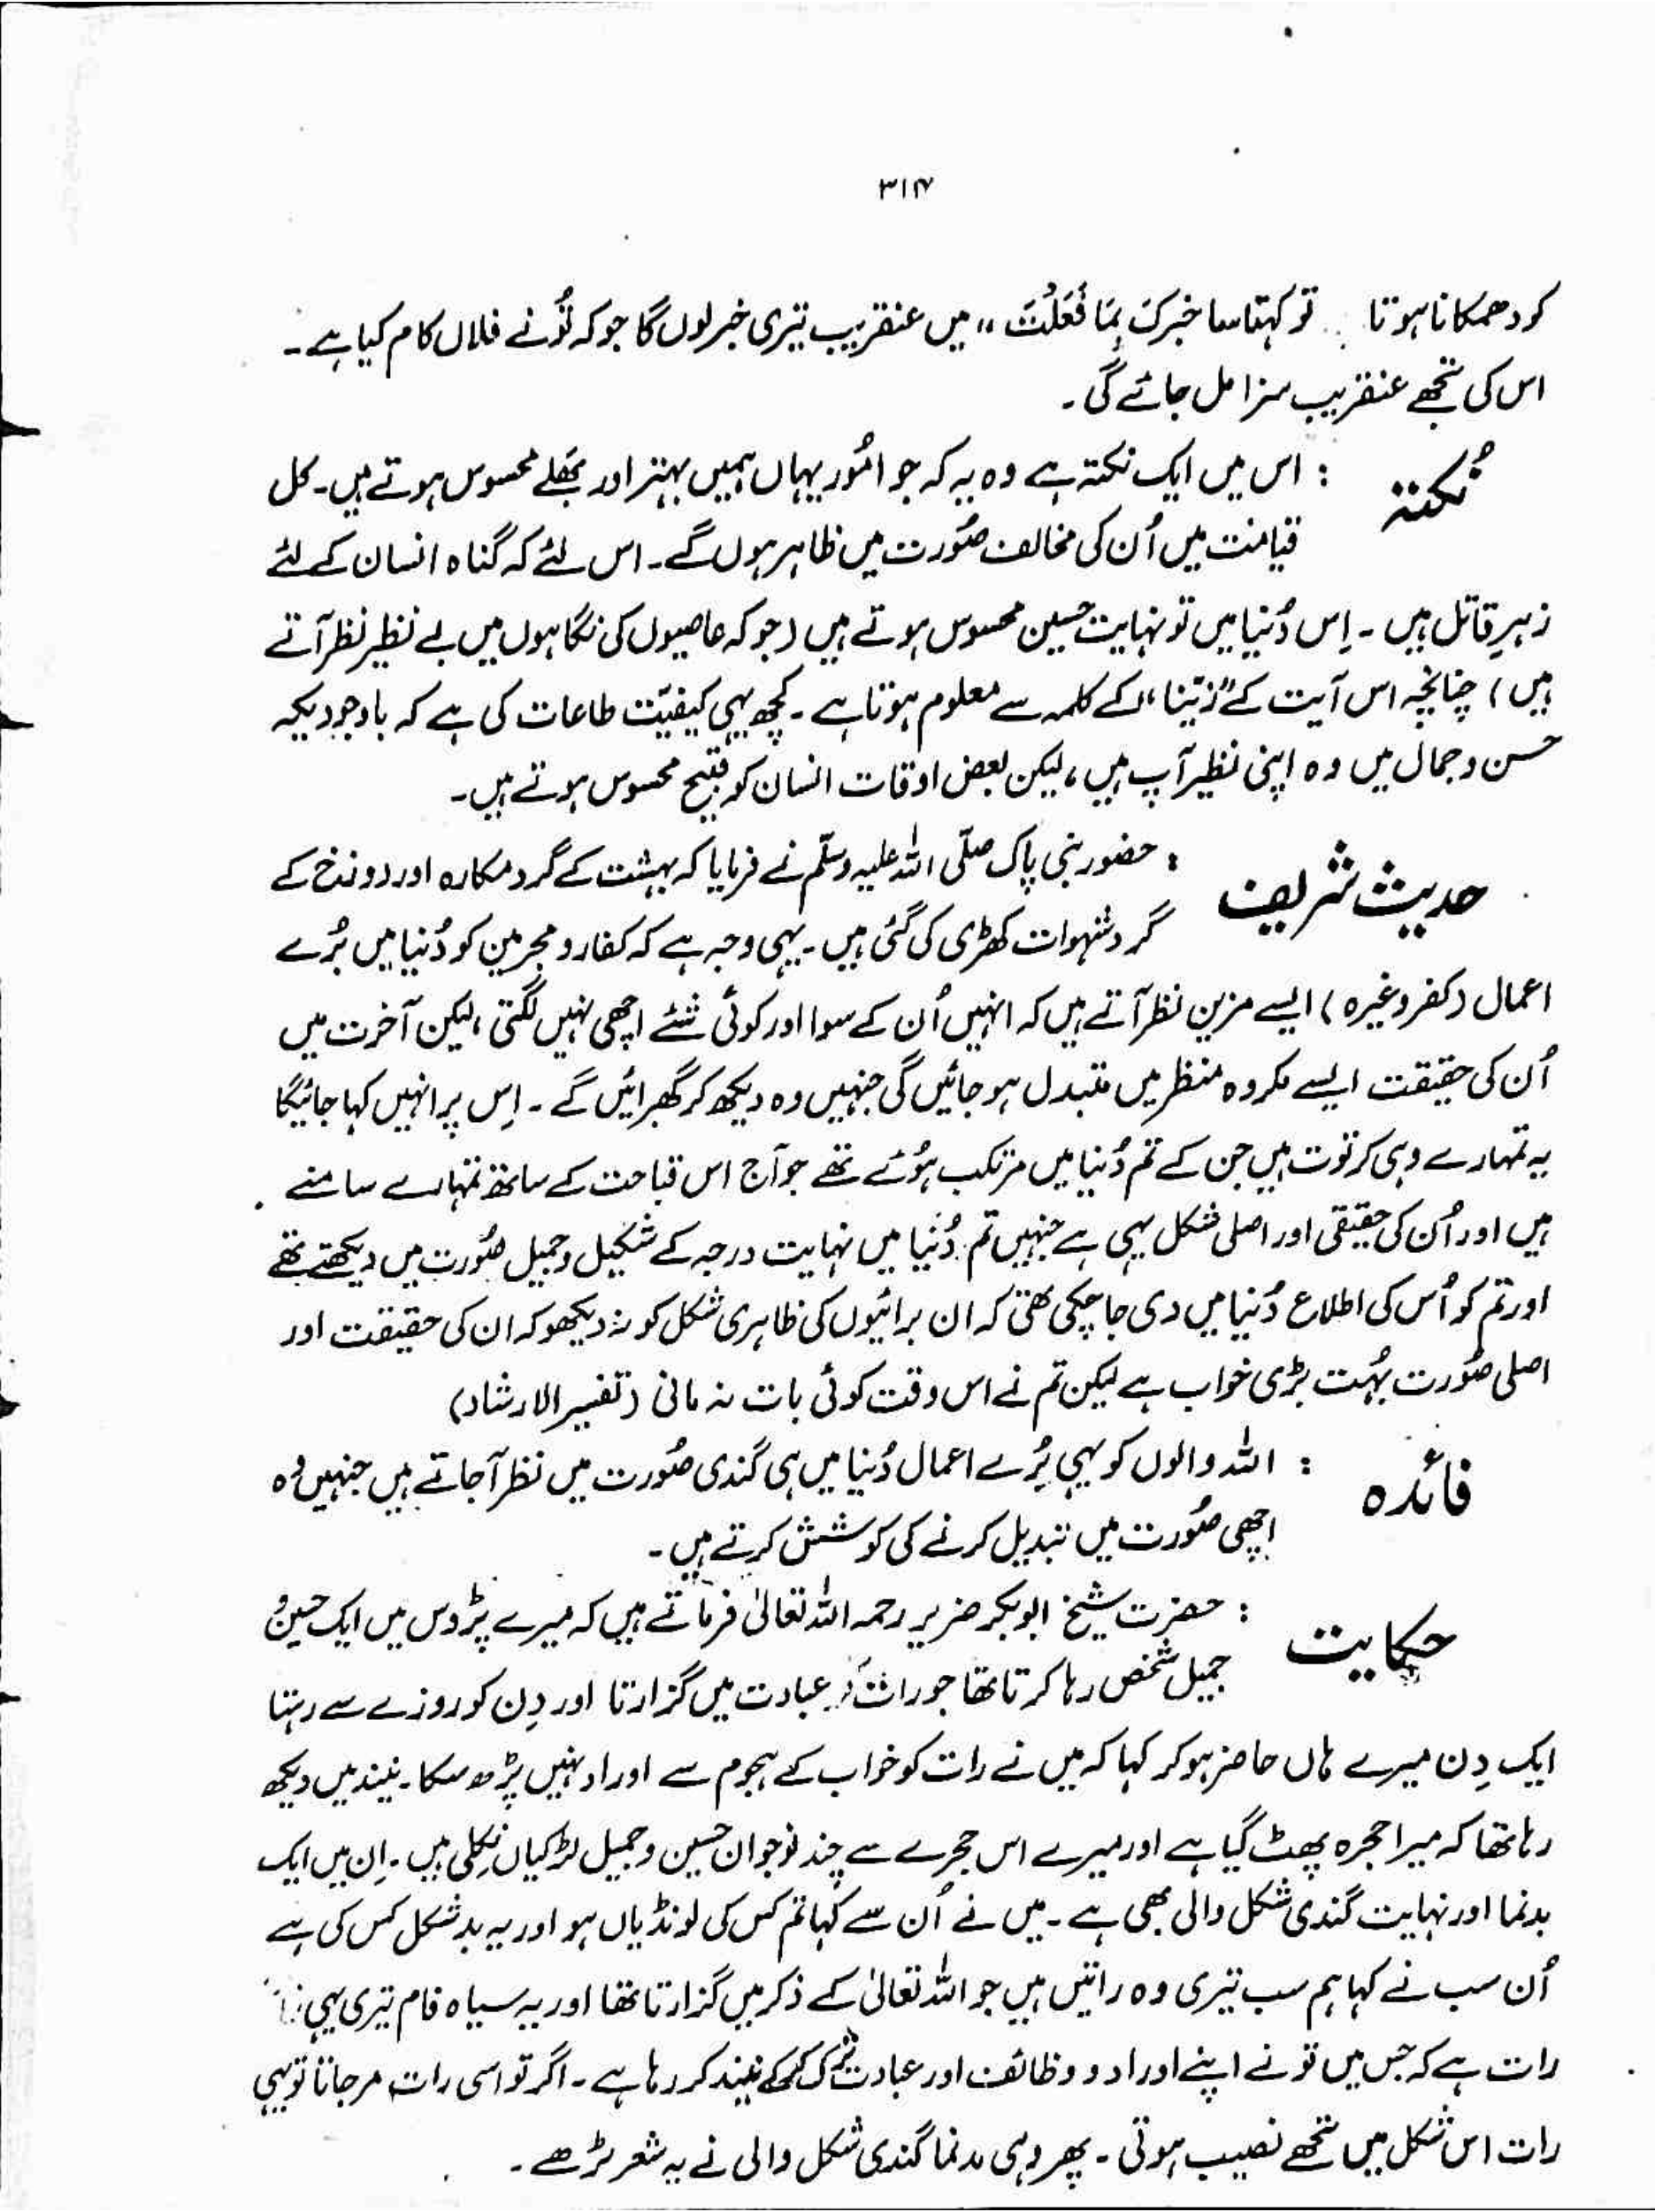 ۳۱۴
کو دھمکانا ہوتا تو کہتا سا خبرکَ بِمَا فَعَلْتَ ،، میں عنقریب تیری خبر لوں گا جو کہ تُونے فلاں کام کیا ہے ۔
اس کی تجھے عنقریب سزا مل جائے گی ۔
نُکتہ : اس میں ایک نکتہ ہے وہ یہ کہ جو امُور یہاں ہمیں بہتر اور بھَلے محسوس ہوتے ہیں ۔ کل
قیامت میں اُن کی مخالف صُورت میں ظاہر ہوں گے ۔ اس لئے کہ گناہ انسان کے لئے
زہرِ قاتل ہیں ۔ اِس دُنیا میں تو نہایت حسین محسوس ہوتے ہیں (جو کہ عاصیوں کی نگاہوں میں بے نظیر نظر آتے
ہیں) چنانچہ اس آیت کے "زیّنا،، کے کلمہ سے معلوم ہوتا ہے ۔ کچھ یہی کیفیّت طاعات کی ہے کہ باوجودیکہ
حسن و جمال میں وہ اپنی نظیر آپ ہیں ، لیکن بعض اوقات انسان کو قبیح محسوس ہوتے ہیں ۔
حدیث شریف : حضور نبی پاک صلّی اللہ علیہ وسلّم نے فرمایا کہ بہشت کے گرد مکارہ اور دوزخ کے
گرد شہوات کھڑی کی گئی ہیں ۔ یہی وجہ ہے کہ کفار و مجرمین کو دُنیا میں بُرے
اعمال (کفر وغیرہ) ایسے مزین نظر آتے ہیں کہ انہیں اُن کے سوا اور کوئی شئے اچھی نہیں لگتی ، لیکن آخرت میں
اُن کی حقیقت ایسے مکروہ منظر میں متبدل ہو جائیں گی جنہیں وہ دیکھ کر گھبرائیں گے ۔ اِس پر انہیں کہا جائیگا
یہ تمہارے وہی کرتوت ہیں جن کے تم دُنیا میں مرتکب ہُوئے تھے جو آج اس قباحت کے ساتھ تمہارے سامنے
ہیں اور اُن کی حقیقی اور اصلی شکل یہی ہے جنہیں تم دُنیا میں نہایت درجہ کے شکیل و جمیل صُورت میں دیکھتے تھے
اور تم کو اُس کی اطلاع دُنیا میں دی جا چکی تھی کہ ان برائیوں کی ظاہری شکل کو نہ دیکھو کہ ان کی حقیقت اور
اصلی صُورت بہُت بڑی خواب ہے لیکن تم نے اس وقت کوئی بات نہ مانی (تفسیر الارشاد)
فائدہ : اللہ والوں کو یہی بُرے اعمال دُنیا میں ہی گندی صُورت میں نظر آجاتے ہیں جنہیں وُہ
اچھی صُورت میں تبدیل کرنے کی کوشش کرتے ہیں ۔
حکایت : حضرت شیخ ابوبکر ضریر رحمہ اللہ تعالیٰ فرماتے ہیں کہ میرے پڑوس میں ایک حسین و
جمیل شخص رہا کرتا تھا جو رات عبادت میں گزارتا اور دِن کو روزے سے رہتا
ایک دِن میرے ہاں حاضر ہو کر کہا کہ میں نے رات کو خواب کے ہجوم سے اوراد نہیں پڑھ سکا ۔ نیند میں دیکھ
رہا تھا کہ میرا حجرہ پھٹ گیا ہے اور میرے اس حجرے سے چند نوجوان حسین و جمیل لڑکیاں نِکلی ہیں ۔ اِن میں ایک
بدنما اور نہایت گندی شکل والی بھی ہے ۔ میں نے اُن سے کہا تم کس کی لونڈیاں ہو اور یہ بد شکل کس کی ہے
اُن سب نے کہا ہم سب تیری وہ راتیں ہیں جو اللہ تعالیٰ کے ذکر میں گزارتا تھا اور یہ سیاہ فام تیری یہی
رات ہے کہ جس میں تو نے اپنے اوراد و وظائف اور عبادت ترک کر کے نیند کر رہا ہے ۔ اگر تو اسی رات مر جاتا تو یہی
رات اس شکل میں تجھے نصیب ہوتی ۔ پھر وہی بدنما گندی شکل والی نے یہ شعر پڑھے ۔